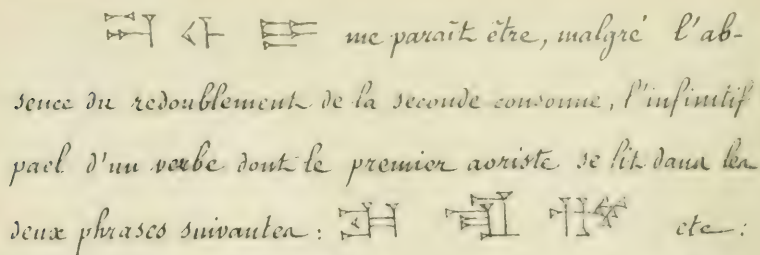 me paraît être, malgré l'ab-
sence du redoublement de la seconde consonne, l'infinitif
pael d'un verbe dont le premier aoriste se lit dans les
deux phrases suivantes : etc :